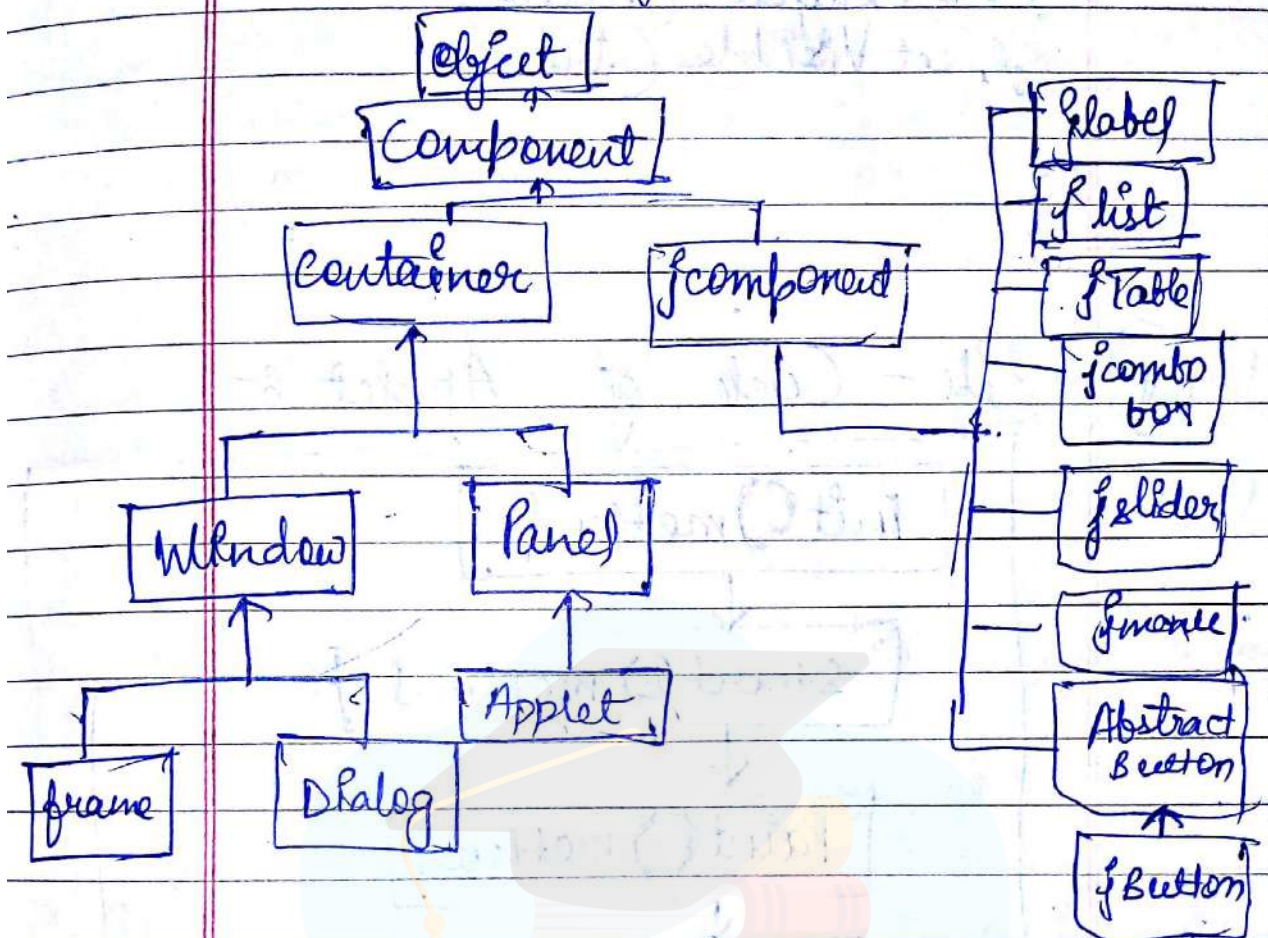 Object
Component
Container
jcomponent
Window
Panel
frame
Dialog
Applet
jlabel
j list
j Table
jcombo
box
jslider
jmenu
Abstract
Button
jButton